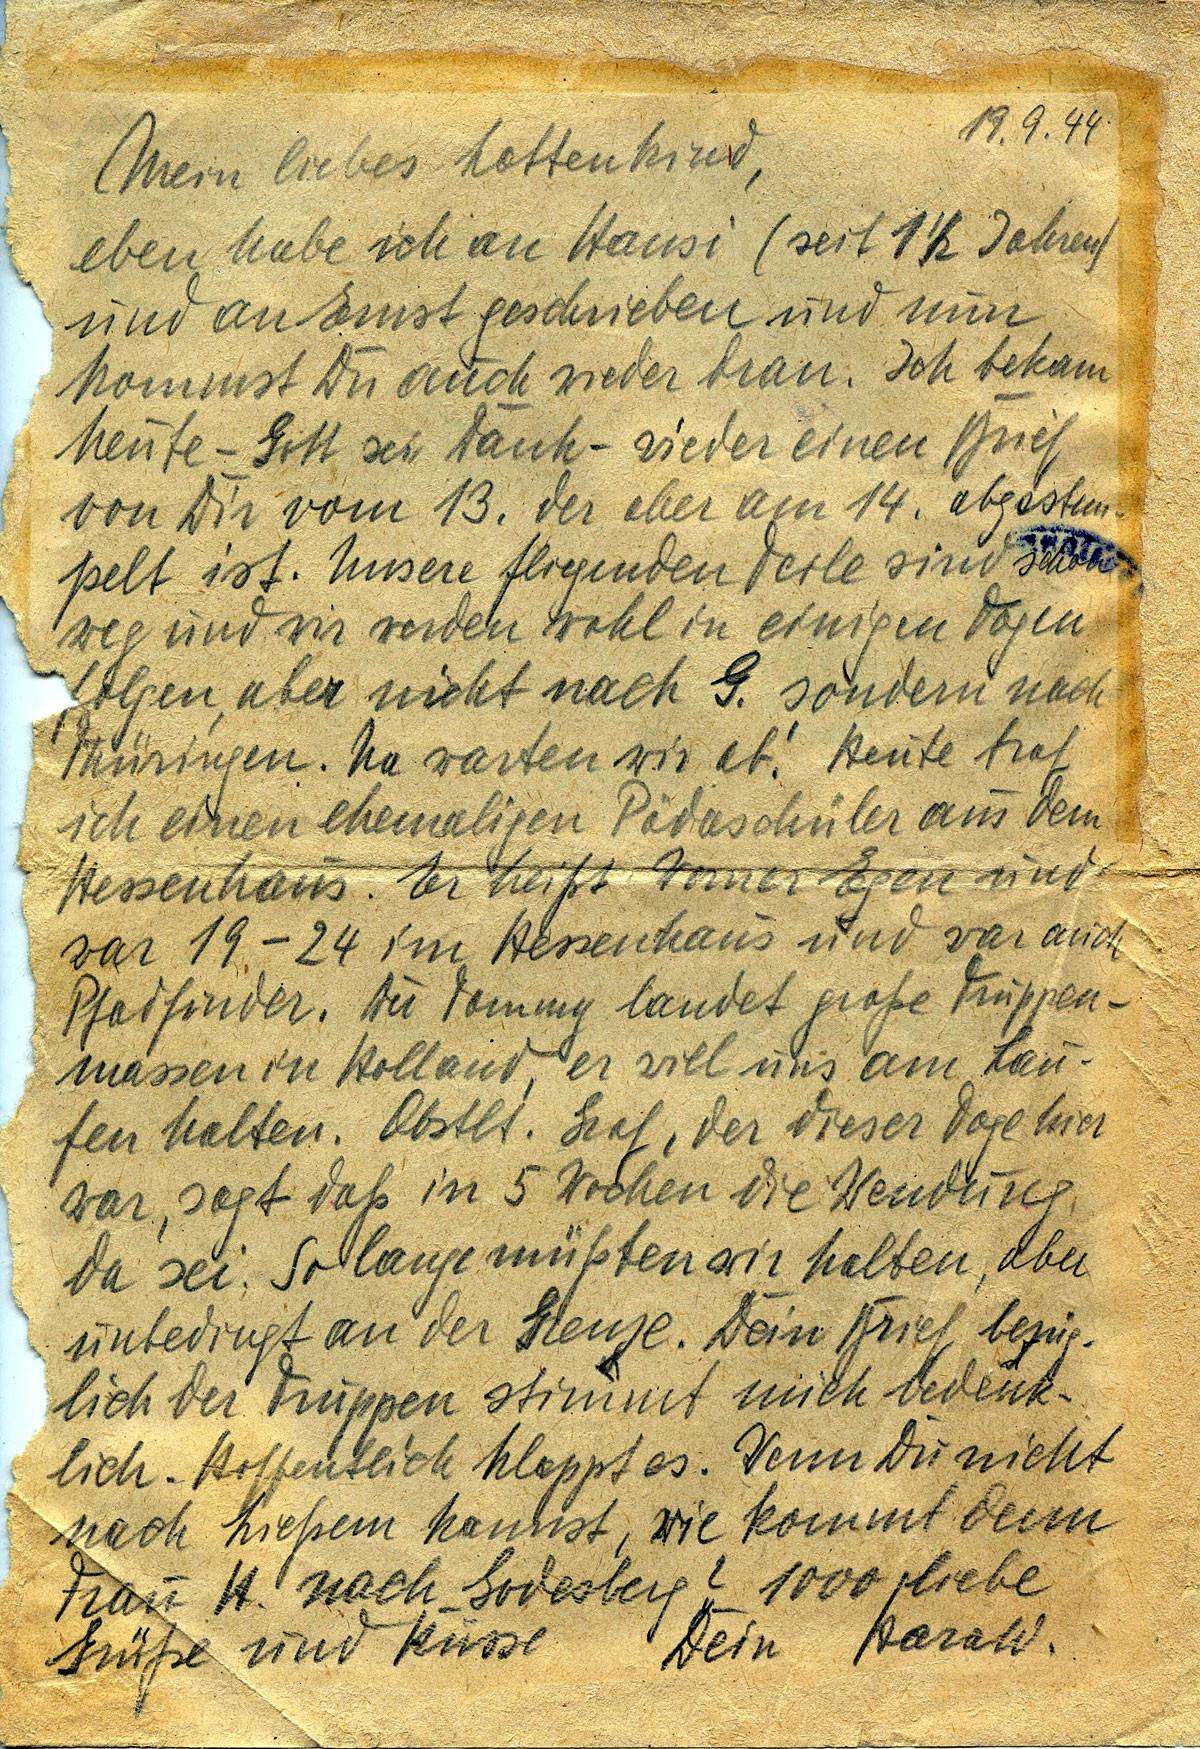 19.9.44
Mein liebes Lottenkind,
eben habe ich an Hansi (seit 1 1/2 Jahren)
und an Ernst geschrieben und nun
kommst Du auch wieder dran. Ich bekam
heute – Gott sei Dank – wieder einen Brief
von Dir vom 13. der aber am 14. abgestem-
pelt ist. Unsere fliegenden Teile sind schon
weg und wir werden wohl in einigen Tagen
folgen, aber nicht nach G. sondern nach
Thüringen. Na warten wir ab! Heute traf
ich einen ehemaligen Pädaschüler aus dem
Hessenhaus. Er heißt Werner Egen und
war 19–24 im Hessenhaus und war auch
Pfadfinder. Der Tommy landet große Truppen-
massen in Holland, er will uns am Lau-
fen halten. Obstlt. Graf, der dieser Tage hier
war, sagt daß in 5 Wochen die Wendung
da sei. So lange müßten wir halten, aber
unbedingt an der Grenze. Dein Brief bezüg-
lich der Truppen stimmt mich bedenk-
lich. Hoffentlich klappt es. Wenn Du nicht
nach Gießen kannst, wie kommt denn
Frau H. nach Godesberg? 1000 liebe
Grüße und Küsse Dein Harald.